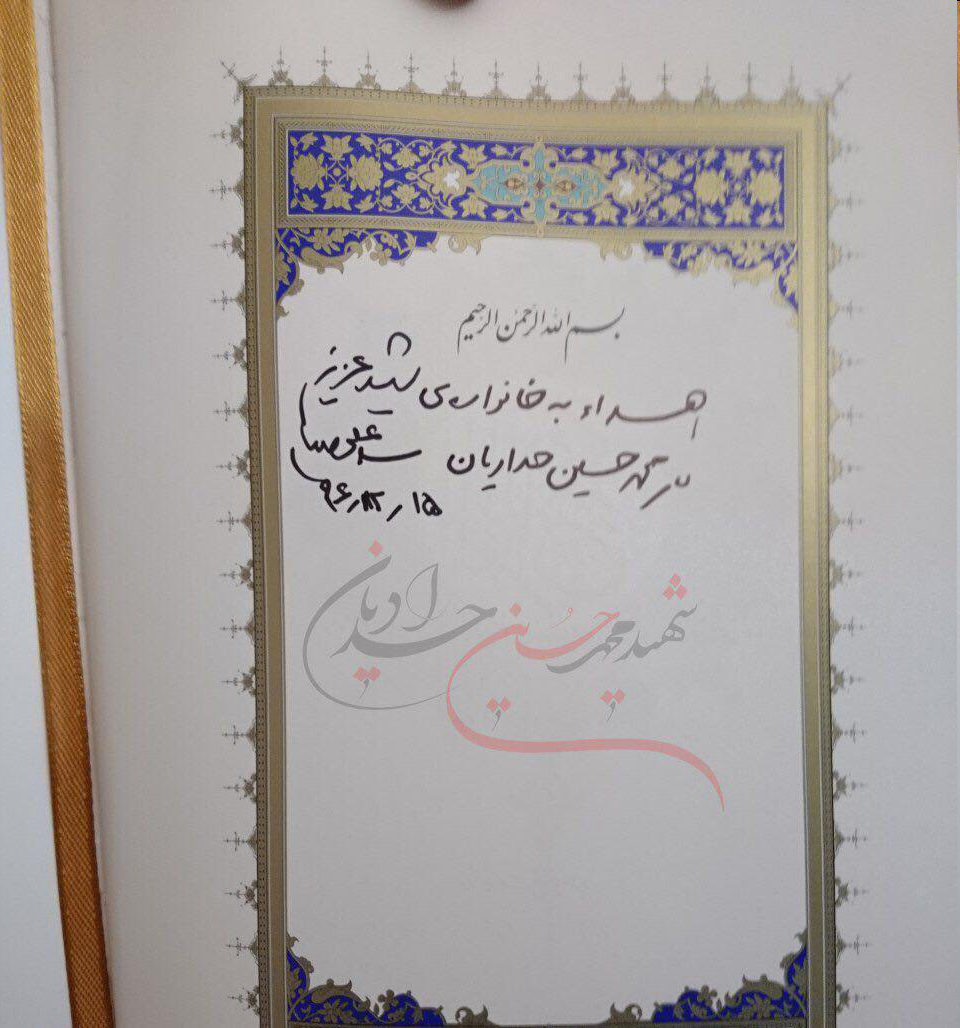 بسم الله الرحمن الرحیم
اهداء به خانواده‌ی شهید عزیز
محمد حسین حدادیان سید علی
۱۵ ر ۱۲ ر ۹۶
شهید محمد حسین حدادیان